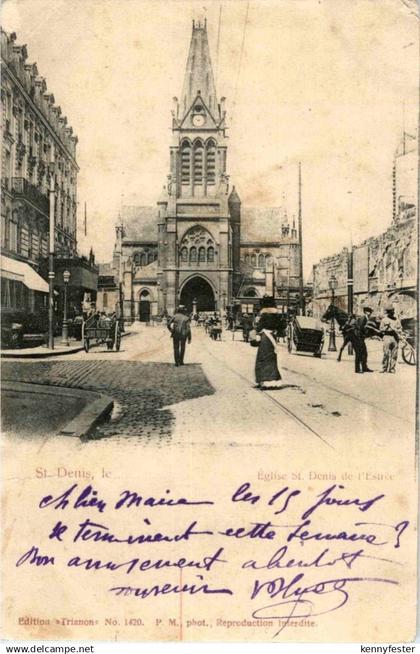 St. Denis, le
Église St. Denis de l'Estrée
Chien Marie les 15 jours
se terminent cette semaine?
Bon amusement à bientôt
souvenir
Edition »Trianon« No. 1420. P. M., phot., Reproduction Interdite.
kennyfester
www.delcampe.net
kennyfester